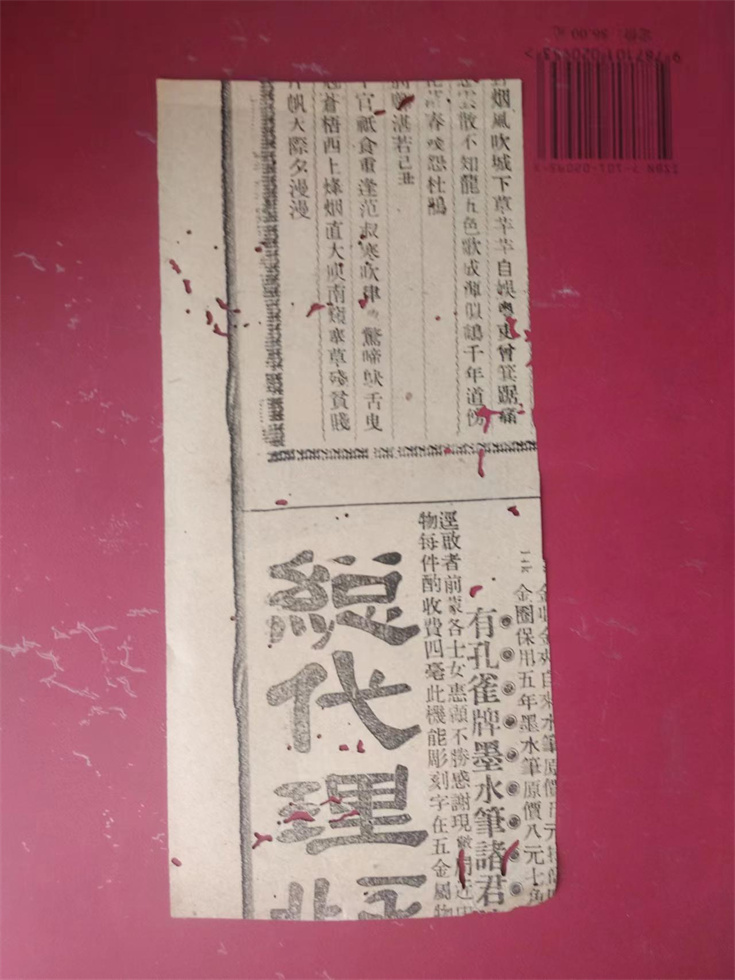 烟風吹城下草芊芊自娛粵吏曾箕踞痛
散不知龍九色歌成渾似鶴千年道傍
春啼怨杜鵑
湛若己丑
官祇食重逢范叔寒吹律驚啼鴃舌曳
蒼梧西上烽烟直大庾南窺塞草殘貧賤
帆天際夕漫漫
金圈保用五年墨水筆原價八元七角
有孔雀牌墨水筆諸君
逕啟者前蒙各士女惠顧不勝感謝現
物每件酌收費四毫此機能彫刻字在五金屬物
總代理
9787101020953>
ISBN 7-101-02095-3
定價：36.00元